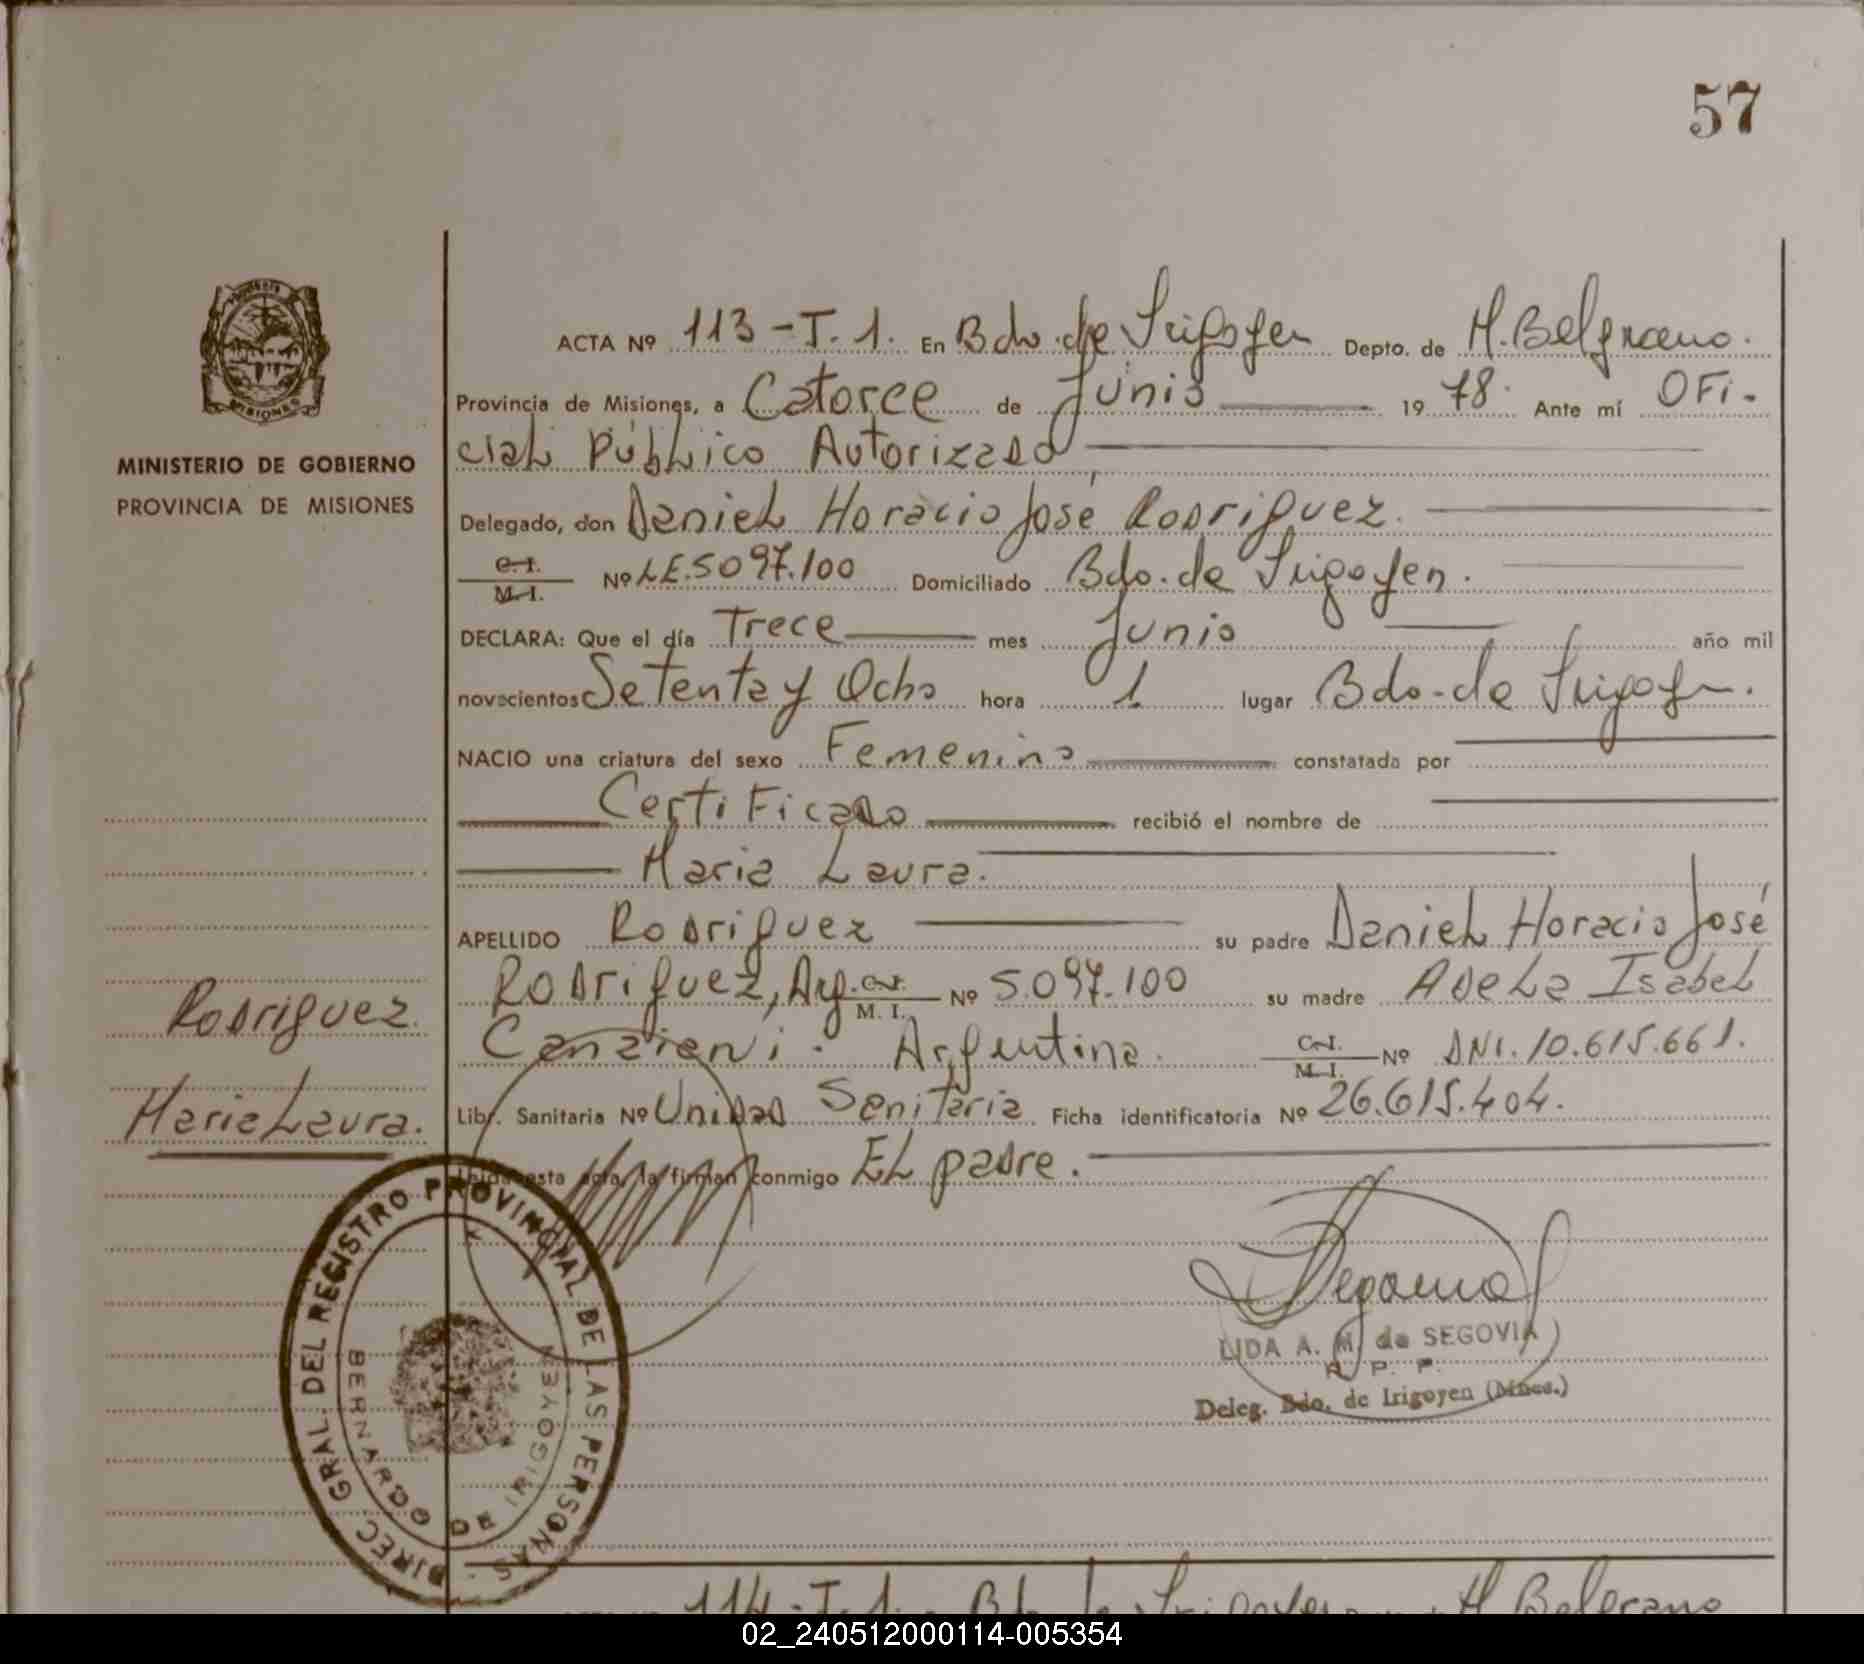 57
MINISTERIO DE GOBIERNO
PROVINCIA DE MISIONES
Rodriguez
Maria Laura.
ACTA Nº 113-T.1. En Bdo. de Irigoyen Depto. de M. Belgrano.
Provincia de Misiones, a Catorce de Junio 1978. Ante mí OFi-
cial Público Autorizado
Delegado, don Daniel Horacio José Rodriguez.
C.I. / M.I. Nº LE.5097.100 Domiciliado Bdo. de Irigoyen.
DECLARA: Que el día Trece mes Junio año mil
novecientos Setenta y Ocho hora 1 lugar Bdo. de Irigoyen.
NACIO una criatura del sexo Femenino constatada por
Certificado recibió el nombre de
Maria Laura.
APELLIDO Rodriguez su padre Daniel Horacio José
Rodriguez, Arg. C.I. / M.I. Nº 5.097.100 su madre Adela Isabel
Canziani. Argentina. C.I. / M.I. Nº DNI. 10.615.661.
Libr. Sanitaria Nº Unidad Sanitaria Ficha identificatoria Nº 26.615.404.
Leída esta acta, la firman conmigo El padre.
DIREC. GRAL. DEL REGISTRO PROVINCIAL DE LAS PERSONAS.
BERNARDO DE IRIGOYEN
LIDA A. M. de SEGOVIA
R. P. P.
Deleg. Bdo. de Irigoyen (Mnes.)
114-T.1. Bdo. de Irigoyen M. Belgrano
02_240512000114-005354